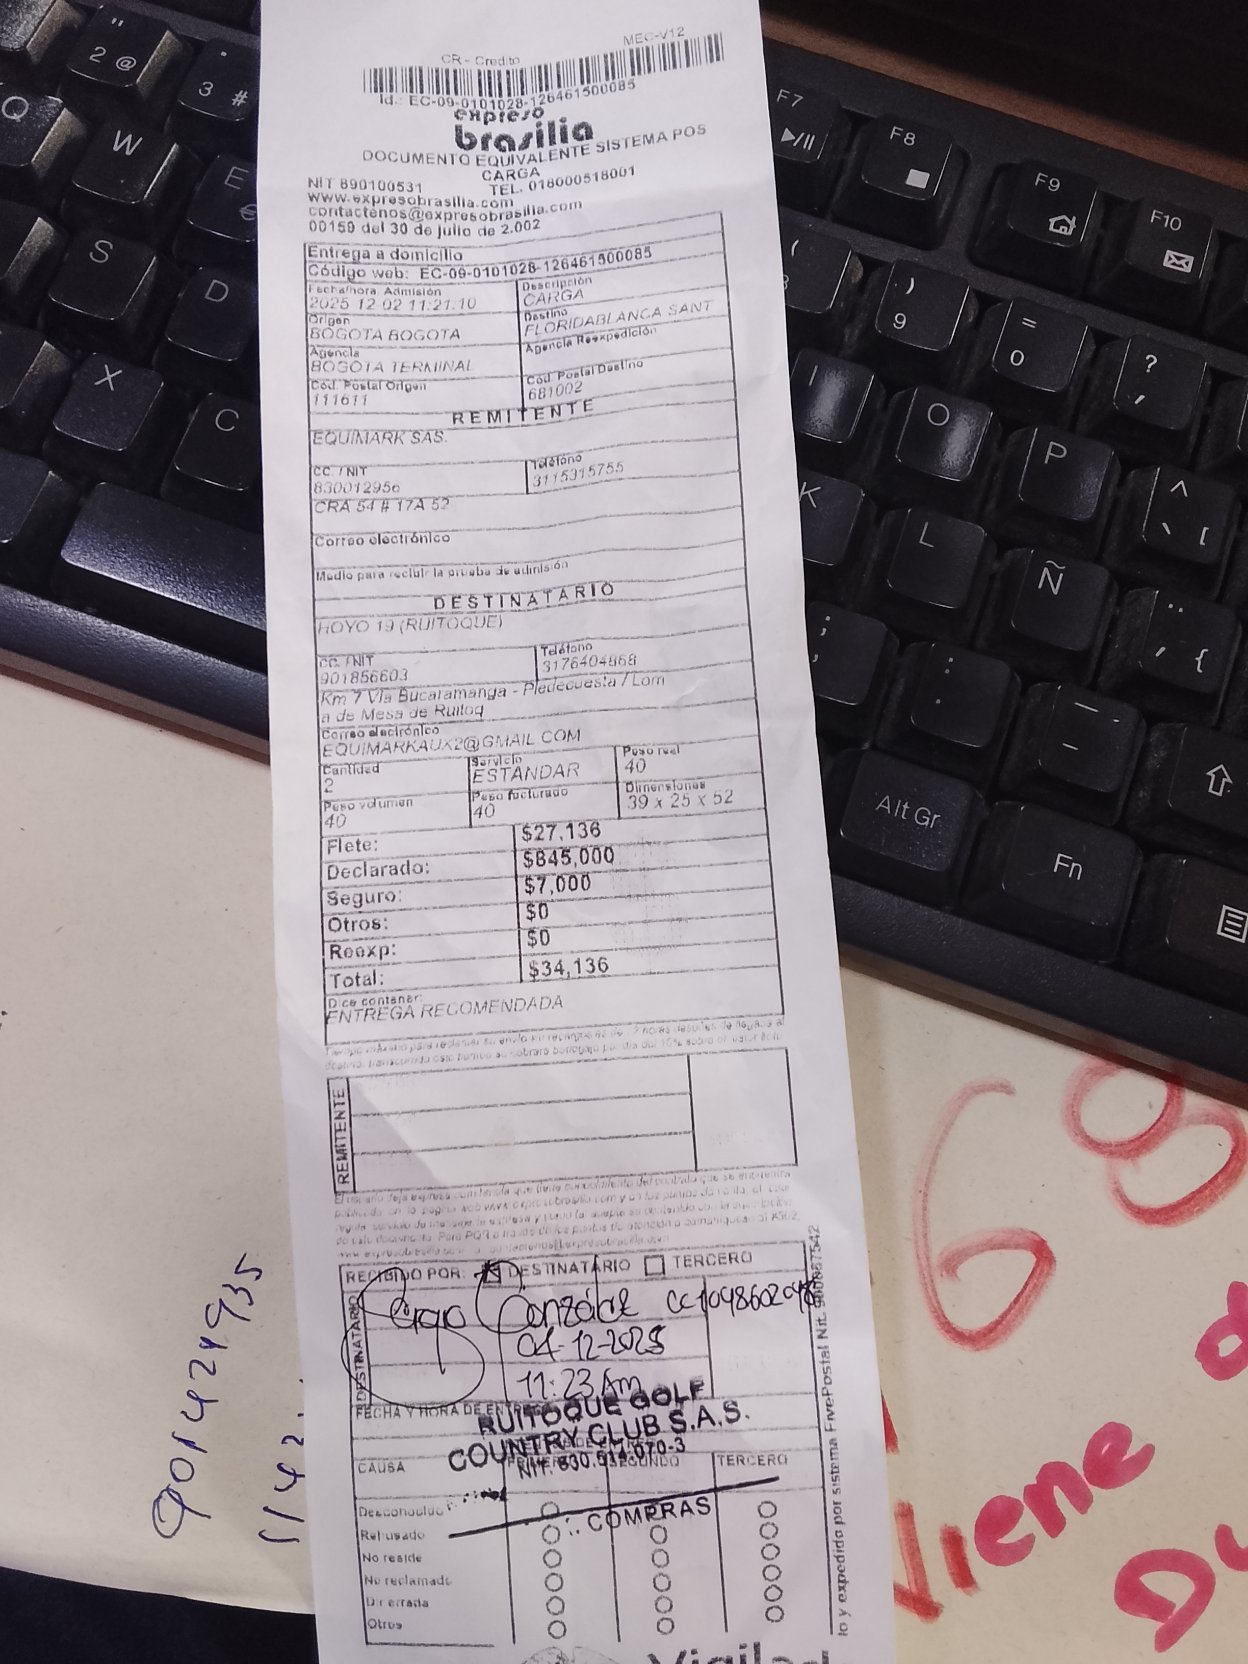 CR - Credito
MEC-V12
Id.: EC-09-0101028-126461500085
expreso
brasilia
DOCUMENTO EQUIVALENTE SISTEMA POS
CARGA
NIT 890100531 TEL. 018000518001
www.expresobrasilia.com
contactenos@expresobrasilia.com
00159 del 30 de julio de 2.002
Entrega a domicilio
Código web: EC-09-0101028-126461500085
Fecha/hora Admisión Descripción
2025 12 02 11:21:10 CARGA
Origen Destino
BOGOTA BOGOTA FLORIDABLANCA SANT
Agencia Agencia Reexpedición
BOGOTA TERMINAL
Cód. Postal Origen Cód. Postal Destino
111611 681002
REMITENTE
EQUIMARK SAS.
CC. / NIT Teléfono
830012956 3115315755
CRA 54 # 17A 52
Correo electrónico
Medio para recibir la prueba de admisión
DESTINATARIO
HOYO 19 (RUITOQUE)
CC. / NIT Teléfono
901856603 3176404868
Km 7 Vía Bucaramanga - Piedecuesta / Lom
a de Mesa de Ruitoq
Correo electrónico
EQUIMARKAUX2@GMAIL COM
Cantidad Servicio Peso real
2 ESTANDAR 40
Peso volumen Peso facturado Dimensiones
40 40 39 x 25 x 52
Flete: $27,136
Declarado: $845,000
Seguro: $7,000
Otros: $0
Reexp: $0
Total: $34,136
Dice contener:
ENTREGA RECOMENDADA
REMITENTE
RECIBIDO POR: DESTINATARIO TERCERO
DESTINATARIO
González CC1048602048
04-12-2025
11:23 Am
FECHA Y HORA DE
RUITOQUE GOLF
COUNTRY CLUB S.A.S.
NIT. 830.514.070-3
CAUSA SEGUNDO TERCERO
COMPRAS
Desconocido
Rehusado
No reside
No reclamado
Dir errada
Otros
lo y expedido por sistema FivePostal Nit. 900687542
Vigilad
901424935
68
Viene
2 @
3 #
Q
W
E
€
S
D
X
C
F7
F8
F9
F10
)
9
=
0
?
I
O
P
K
L
Ñ
Alt Gr
Fn